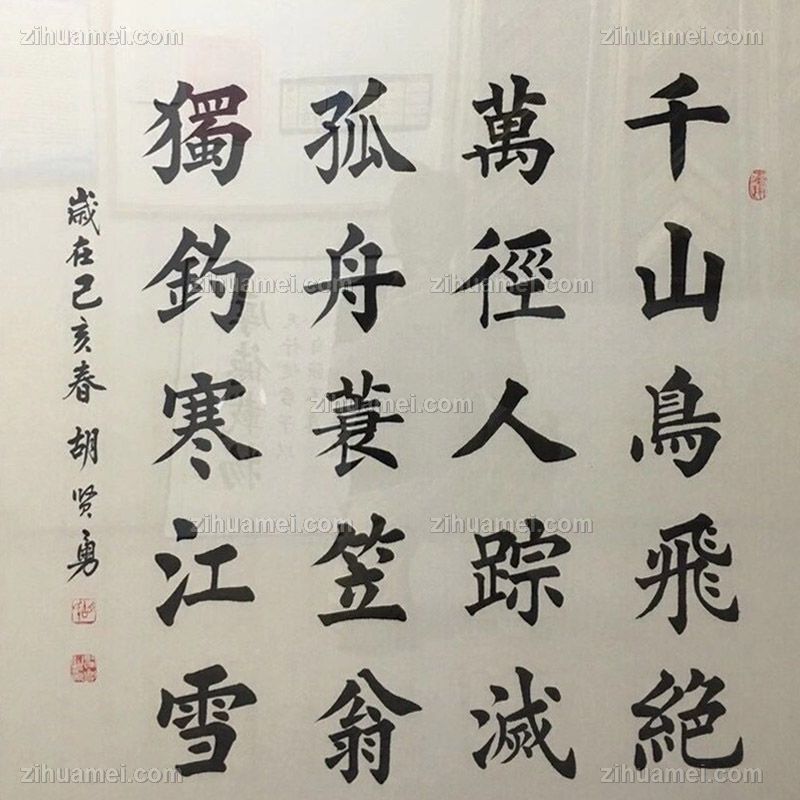 千山鳥飛絶
萬徑人踪滅
孤舟蓑笠翁
獨釣寒江雪
歲在己亥春 胡贤勇
zihuamei.com
zihuamei.com
zihuamei.com
zihuamei.com
zihuamei.com
zihuamei.com
zihuamei.com
zihuamei.com
zihuamei.com
zihuamei.com
zihuamei.com
zihuamei.com
zihuamei.com